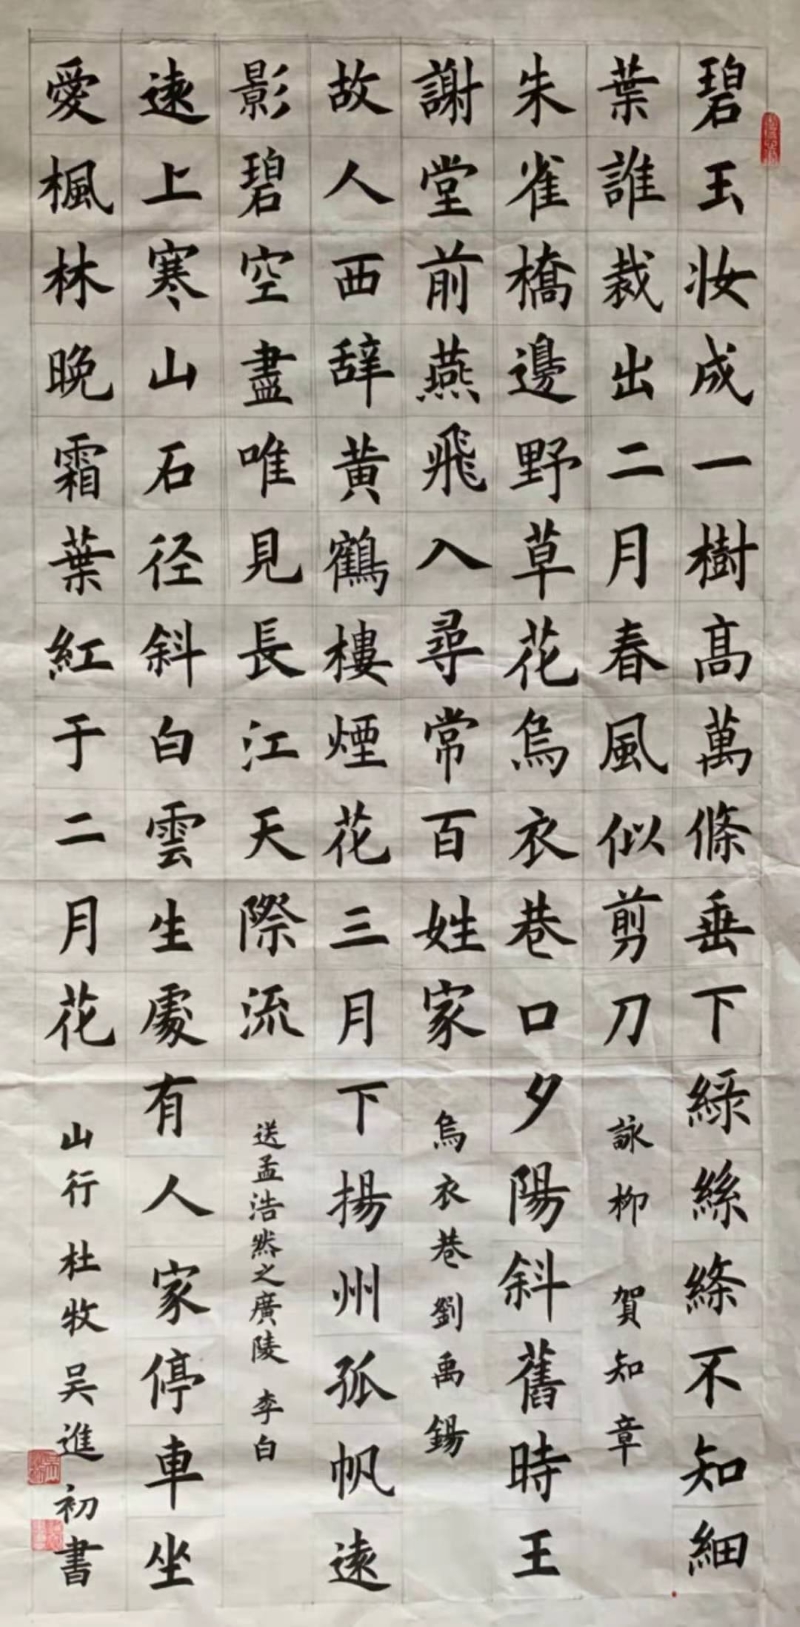 碧玉妆成一樹髙萬條垂下綠絲絛不知細
葉誰裁出二月春風似剪刀 詠柳 賀知章
朱雀橋邊野草花烏衣巷口夕陽斜舊時王
謝堂前燕飛入尋常百姓家 烏衣巷劉禹錫
故人西辞黄鶴樓煙花三月下揚州孤帆遠
影碧空盡唯見長江天際流 送孟浩然之廣陵 李白
遠上寒山石径斜白雲生處有人家停車坐
愛楓林晚霜葉紅于二月花 山行 杜牧 吴進初書